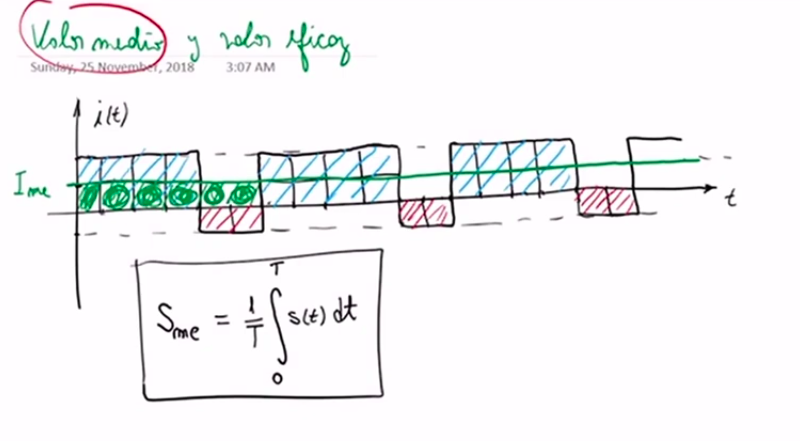 Valor medio y valor eficaz
Sunday, 25 November, 2018 3:07 AM
i(t)
I me
t
S me = 1/T ∫ 0 T s(t) dt